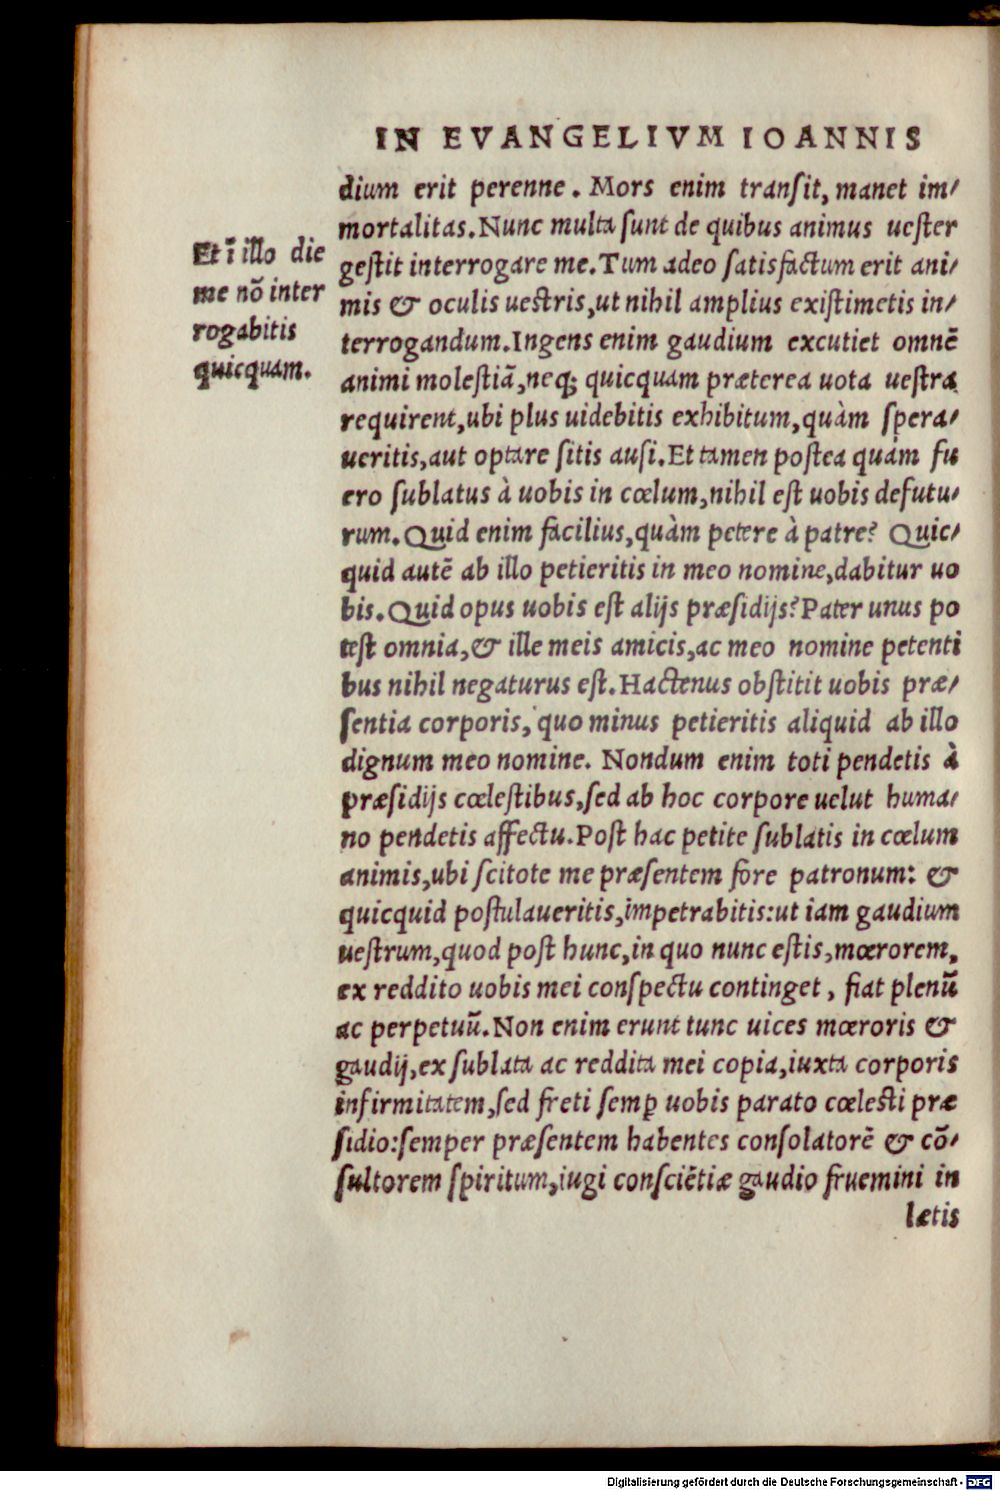 IN EVANGELIVM IOANNIS
dium erit perenne. Mors enim transit, manet im/
mortalitas. Nunc multa sunt de quibus animus uester
gestit interrogare me. Tum adeo satisfactum erit ani/
mis & oculis uestris, ut nihil amplius existimetis in/
terrogandum. Ingens enim gaudium excutiet omnē
animi molestiã, neq; quicquam præterea uota uestra
requirent, ubi plus uidebitis exhibitum, quàm spera/
ueritis, aut optare sitis ausi. Et tamen postea quàm fu
ero sublatus à uobis in cœlum, nihil est uobis defutu/
rum. Quid enim facilius, quàm petere à patre? Quic/
quid autē ab illo petieritis in meo nomine, dabitur uo
bis. Quid opus uobis est alijs præsidijs? Pater unus po
test omnia, & ille meis amicis, ac meo nomine petenti
bus nihil negaturus est. Hactenus obstitit uobis præ/
sentia corporis, quo minus petieritis aliquid ab illo
dignum meo nomine. Nondum enim toti pendetis à
præsidijs cœlestibus, sed ab hoc corpore uelut huma/
no pendetis affectu. Post hac petite sublatis in cœlum
animis, ubi scitote me præsentem fore patronum: &
quicquid postulaueritis, impetrabitis: ut iam gaudium
uestrum, quod post hunc, in quo nunc estis, mœrorem,
ex reddito uobis mei conspectu continget, fiat plenū
ac perpetuū. Non enim erunt tunc uices mœroris &
gaudij, ex sublata ac reddita mei copia, iuxta corporis
infirmitatem, sed freti semꝑ uobis parato cœlesti præ
sidio: semper præsentem habentes consolatorē & cõ/
sultorem spiritum, iugi consciētiæ gaudio fruemini in
lætis
Et ī illo die
me nõ inter
rogabitis
quicquam.
Digitalisierung gefördert durch die Deutsche Forschungsgemeinschaft - DFG